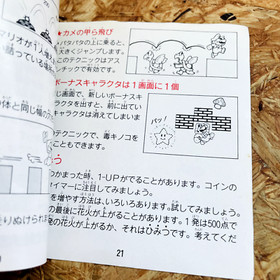 マリオが1人
詰っている
★カメの甲ら飛び
パタパタの上に乗ると、
大きくジャンプします。
このテクニックはアス
レチックで有効です。
ボーナスキャラクタは1画面に1個
じ画面で、新しいボーナスキ
ャラクタを出すと、前に出てい
キャラクタは消えてしまいま
テクニックで、毒キノコを
体と同じ幅の
パッ
う
つかまった時、1-UPがでることがあります。コインの
タイマーに注目してみましょう。
を増やす方法は、いろいろあります。試してみましょう。
の最後に花火が上がることがあります。1発は500点で
発の花火が上がるか、それはひみつです。考えてくだ
りぬけられ
21